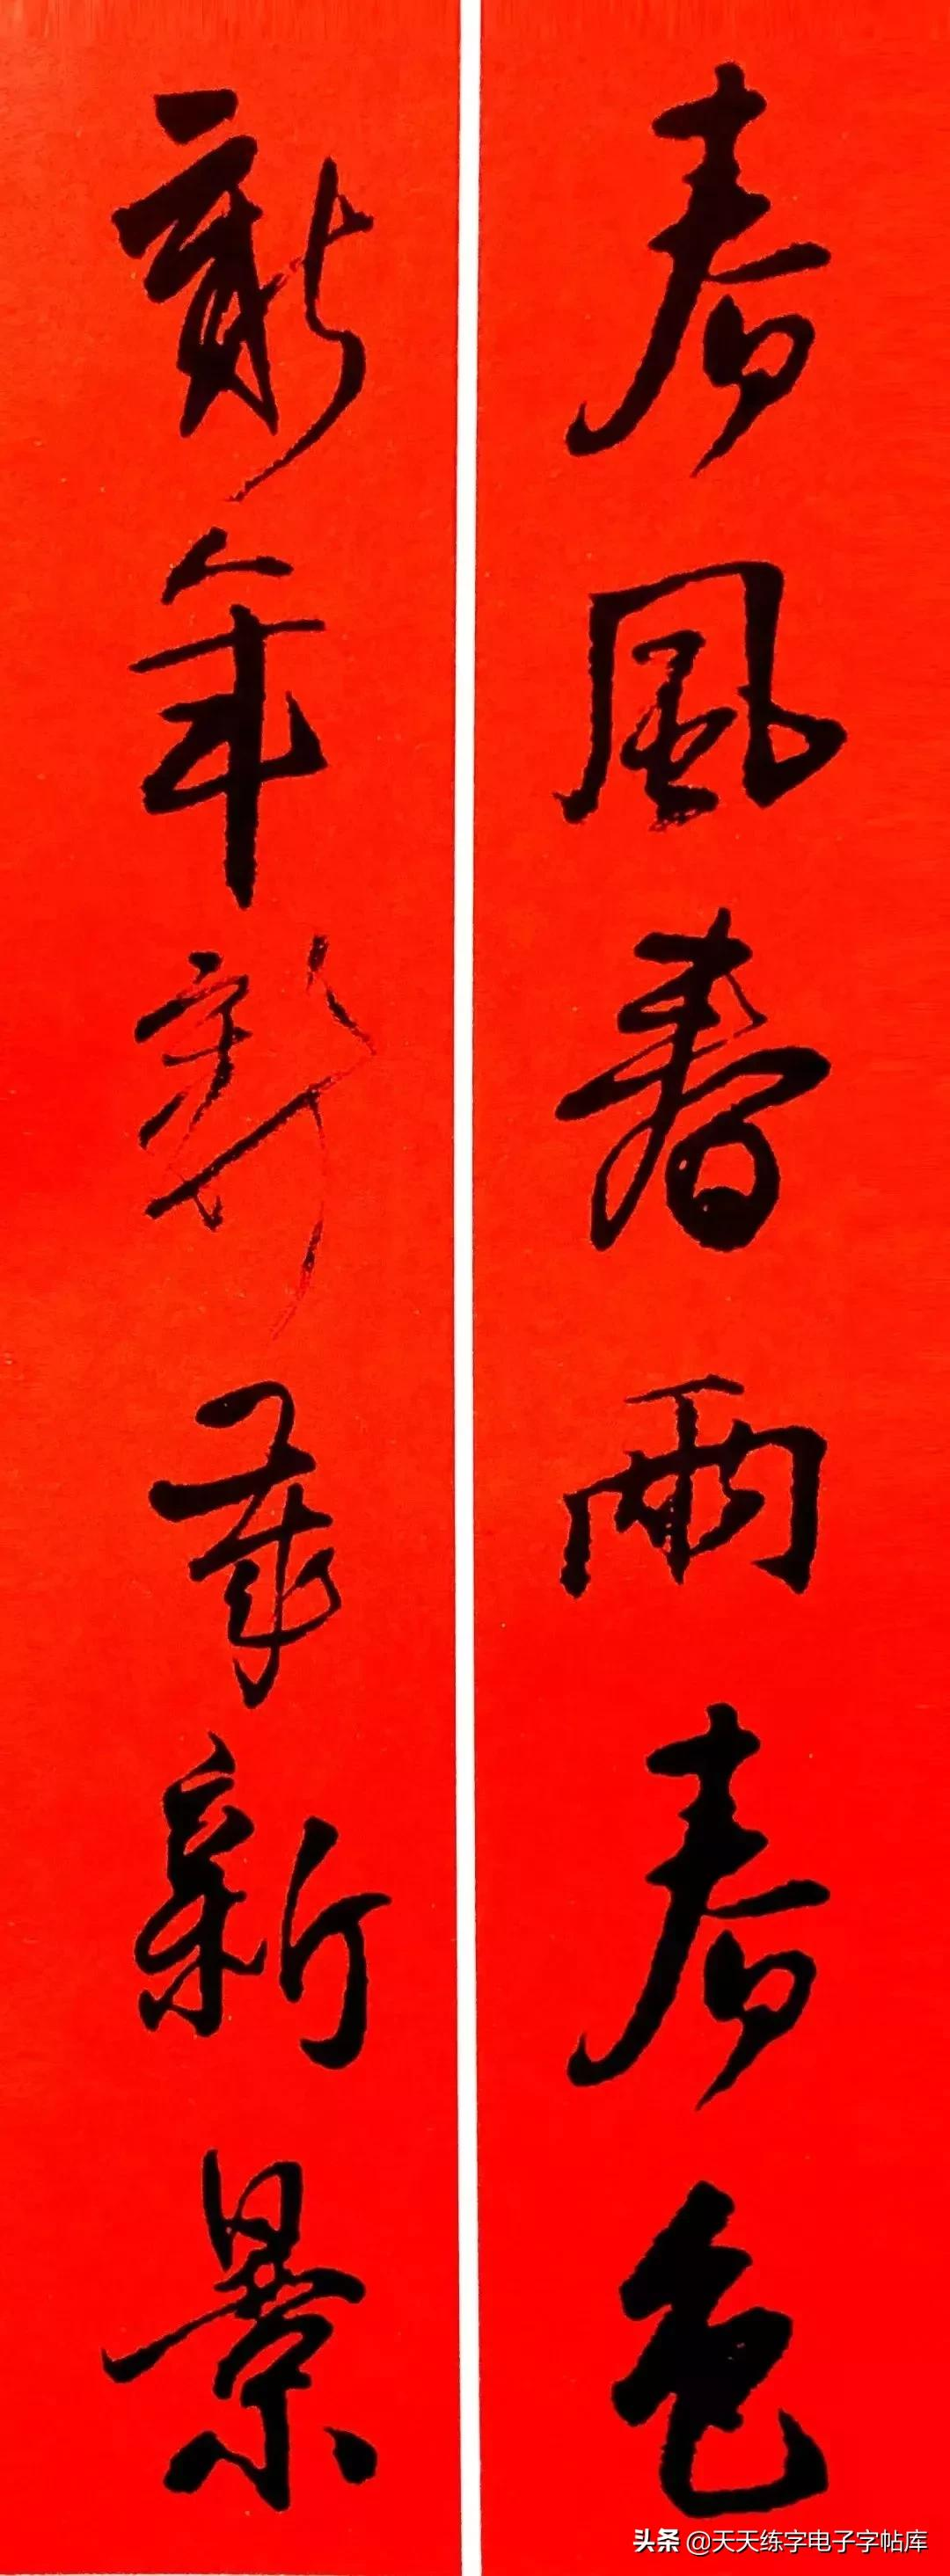 春風春雨春色
新年新歲新景
头条 @天天练字电子字帖库